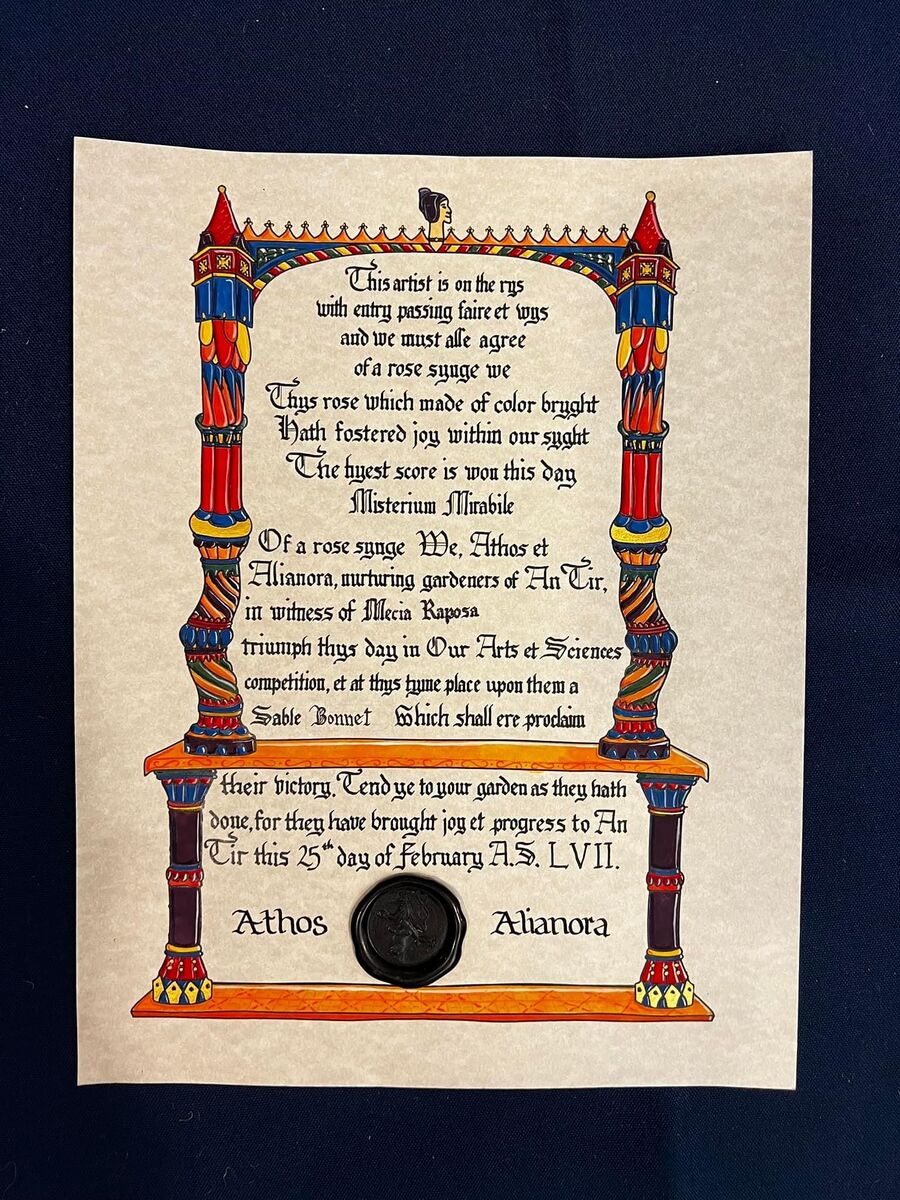 This artist is on the rys
with entry passing faire et wys
and we must alle agree
of a rose synge we
Thys rose which made of color bryght
Hath fostered joy within our syght
The hyest score is won this day
Misterium Mirabile
Of a rose synge We, Athos et
Alianora, nurturing gardeners of An Tir,
in witness of Mecia Raposa
triumph thys day in Our Arts et Sciences
competition, et at thys tyme place upon them a
Sable Bonnet Which shall ere proclaim
their victory. Tend ye to your garden as they hath
done, for they have brought joy et progress to An
Tir this 25th day of February A.S. LVII.
Athos Alianora